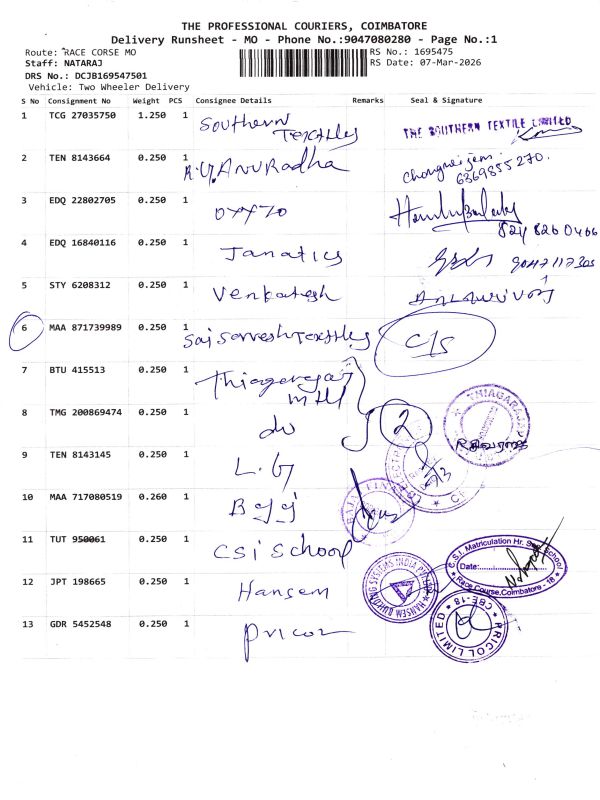 THE PROFESSIONAL COURIERS, COIMBATORE
Delivery Runsheet - MO - Phone No.:9047080280 - Page No.:1
Route: RACE CORSE MO
RS No.: 1695475
Staff: NATARAJ
RS Date: 07-Mar-2026
DRS No.: DCJB169547501
Vehicle: Two Wheeler Delivery
S No Consignment No Weight PCS Consignee Details Remarks Seal & Signature
1 TCG 27035750 1.250 1 Southern Textiles THE SOUTHERN TEXTILE LIMITED
2 TEN 8143664 0.250 1 Anuradha 6369855270.
3 EDQ 22802705 0.250 1 oyyzo 824 820 0466
4 EDQ 16840116 0.250 1 Janatics 9047117305
5 STY 6208312 0.250 1 Venkatesh
6 MAA 871739989 0.250 1 Sai Sarvesh Textiles C/S
7 BTU 415513 0.250 1 Thiagarajar mill
8 TMG 200869474 0.250 1 do 2 THIAGARAJAR
9 TEN 8143145 0.250 1 L.G
10 MAA 717080519 0.260 1 Bajaj BAJAJ FINANCE
11 TUT 950061 0.250 1 CSI School C.S.I. Matriculation Hr. Sec. School Date: Race Course, Coimbatore - 18
12 JPT 198665 0.250 1 Hansem HANSEM BUILDING SYSTEMS INDIA PVT LTD
13 GDR 5452548 0.250 1 Pricol PRICOL LIMITED CBE-18